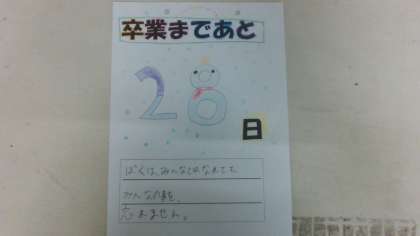 卒業まであと
28
日
ぼくは、みんなとはなれても
みんなの事を、
忘れません。